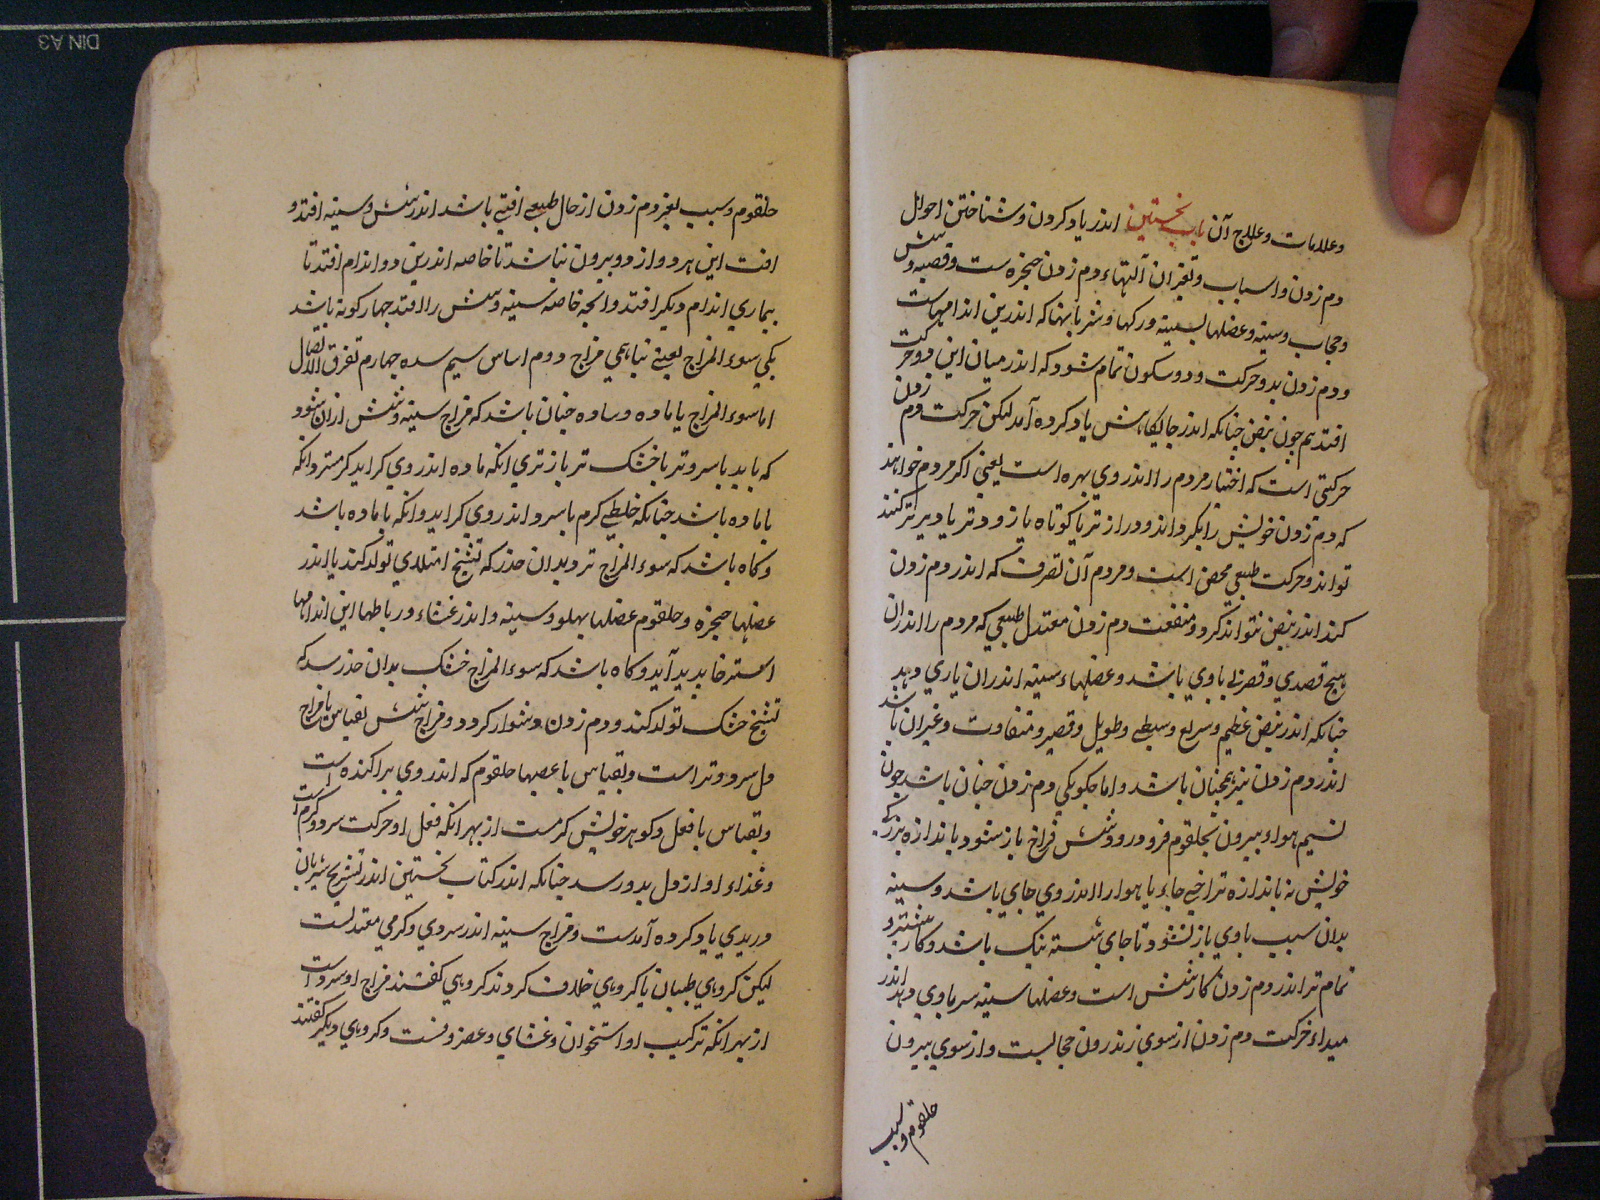 وعلامات وعلاج آن باب نخستین اندر یاد کردن وشناختن احوال
دم زدن واسباب وتغیر ان آلتهاء دم زدن حنجره ست وقصبه وشش
وحجاب وسینه وعضلها سینه ورکها وشریانها که اندرین اندامهاست
ودم زدن بدو حرکت ودو سکون تمام شود که اندر میان این دو حرکت
افتد هم چون نبض چنانکه اندر جایگاهش یاد کرده آمد لیکن حرکت دم زدن
حرکتی است که اختیار مردم را اندر وي بهره است یعني اکر مردم خواهند
که دم زدن خویش را بگرداند ودرازتر یا کوتاه یا زودتر یا دیرتر کنند
تواند وحرکت طبیعي محض است ومردم آن تصرف که اندر دم زدن
کند اندر نبض نتواند کرد ومنفعت دم زدن معتدل طبیعي که مردم را اندران
هیچ قصدي وقصرني باوي باشد وعضلهاء سینه اندران یاري دهد
چنانکه اندر نبض عظیم وسریع وبطي وطویل وقصیر ومتفاوت وغیران باشد
اندر دم زدن نیز همچنان باشد واما چکونکي دم زدن چنان باشد چون
نسیم هواء بیرون بحلقوم فرو رود وشش فراخ باز شود باندازه بزرکي
خویش نه باندازه فراخي جاء یا هوا را اندر وي جاي باشد وسینه
بدان سبب باوي باز نشود تا جاي شسته تنک باشد وکار بیشتر و
تمام تر اندر دم زدن کار شش است وعضلها سینه سر باوي دهد اندر
مبداء حرکت دم زدن از سوي زندرون حجابست واز سوي بیرون
حلقوم وسبب
حلقوم وسبب تغیر دم زدن از حال طبیعي افتي باشد اندر شش وسینه افتد و
افت این هر دو از دو بیرون نباشد تا خاصه اندرین دو اندام افتد تا
بیماري اندام دیکر افتد وانجه خاصه سینه وشش را افتد جهار کونه باشد
یکي سوء المزاج یعني نباهمي مزاج دوم اماس سیم سده چهارم تفرق الاتصال
اما سوء المزاج یا ماده وساده چنان باشد که مزاج سینه وشش ازان شود
که باید با سردتر با خشک تر باز تري انکه ماده اندر وي کراید کرمتر وانکه
با ماده باشد چنانکه خلطي کرم با سرد اندر وي کراید وانکه با ماده باشد
وکاه باشد که سوء المزاج تر وبدان حد که تشنج امتلائي تولد کند یا اندر
عضلها حنجره وحلقوم عضلها پهلو وسینه واندر غشاء ورباطها این اندامها
استرخا پدید آید وکاه باشد که سوء المزاج خشک بدان حد رسد که
تشنج خشک تولد کند ودم زدن دشوار کردد ومزاج شش بقیاس با مزاج
دل سرد وتر است وبقیاس با عصبها حلقوم که اندر وي پراکنده است
وبقیاس با فعل وکوهر خویش کرمست از بهر انکه فعل او حرکت سرد وکرم است
وغذاء او از دل بدو رسد چنانکه اندر کتاب نخستین اندر تشریح شریان
وریدي یاد کرده آمدست ومزاج سینه اندر سردي وکرمي معتدلست
لیکن کروهي طبیبان با کروهي خلاف کردند کروهي کفتند مزاج او سرد است
از بهر انکه ترکیب او استخوان وغشاي وغضروفست وکروهي دیکر کفتند